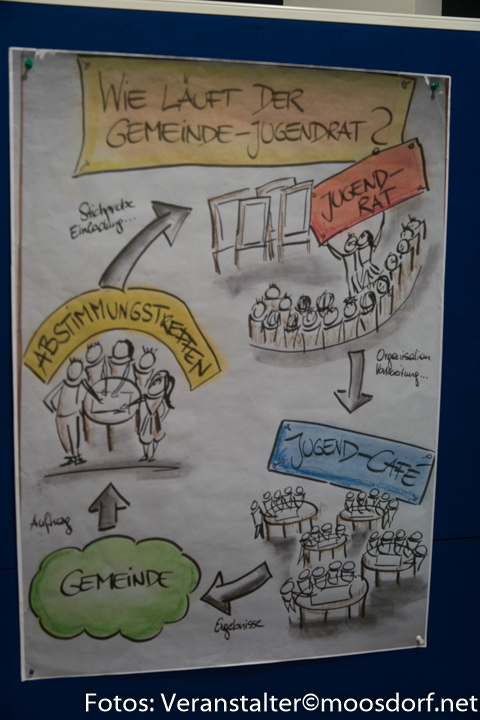 WIE LÄUFT DER
GEMEINDE-JUGENDRAT?
JUGEND-
RAT
Stichprobe
Einladung...
ABSTIMMUNGSTREFFEN
Organisation
Vorbereitung...
JUGEND-CAFÉ
Auftrag
GEMEINDE
Ergebnisse
Fotos: Veranstalter©moosdorf.net